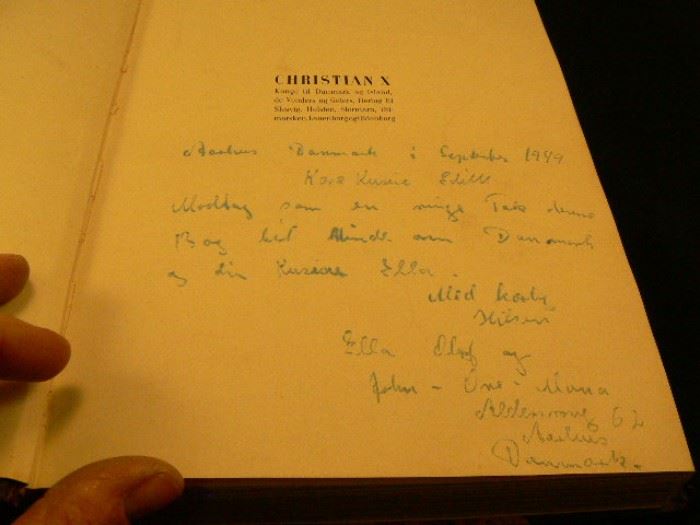 CHRISTIAN X
Konge til Danmark og Island,
de Venders og Goters, Hertug til
Slesvig, Holsten, Stormarn, Dit-
marsken, Lauenborg og Oldenborg
Aarhus Danmark i September 1949
Kære Kusine
Modtag som en ringe Tak denne
Bog til Minde om Danmark
og din Kusine Ella.
Med kærlig
Hilsen
Ella Oluf og
John - Ove - Mona
62
Aarhus
Danmark.